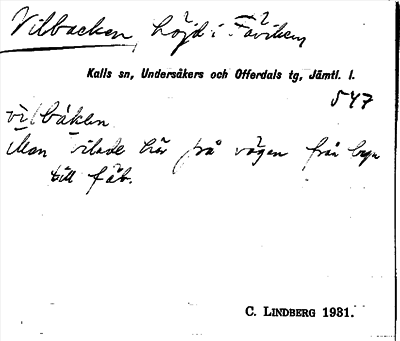 Vilbacken, höjd i Fäviken
Kalls sn, Undersåkers och Offerdals tg, Jämtl. l.
547
vilbákken
Man vilade här på vägen från byn
till fäb.
C. LINDBERG 1931.